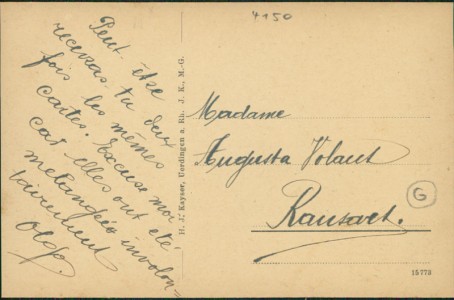 4150
Peut-être
recevras-tu deux
fois les mêmes
cartes. Excuse moi
car elles ont été
melangées involon=
tairement
H. J. Kayser, Uerdingen a. Rh. J. K., M.-G.
Madame
Augusta Volant
Ransart.
G
15773